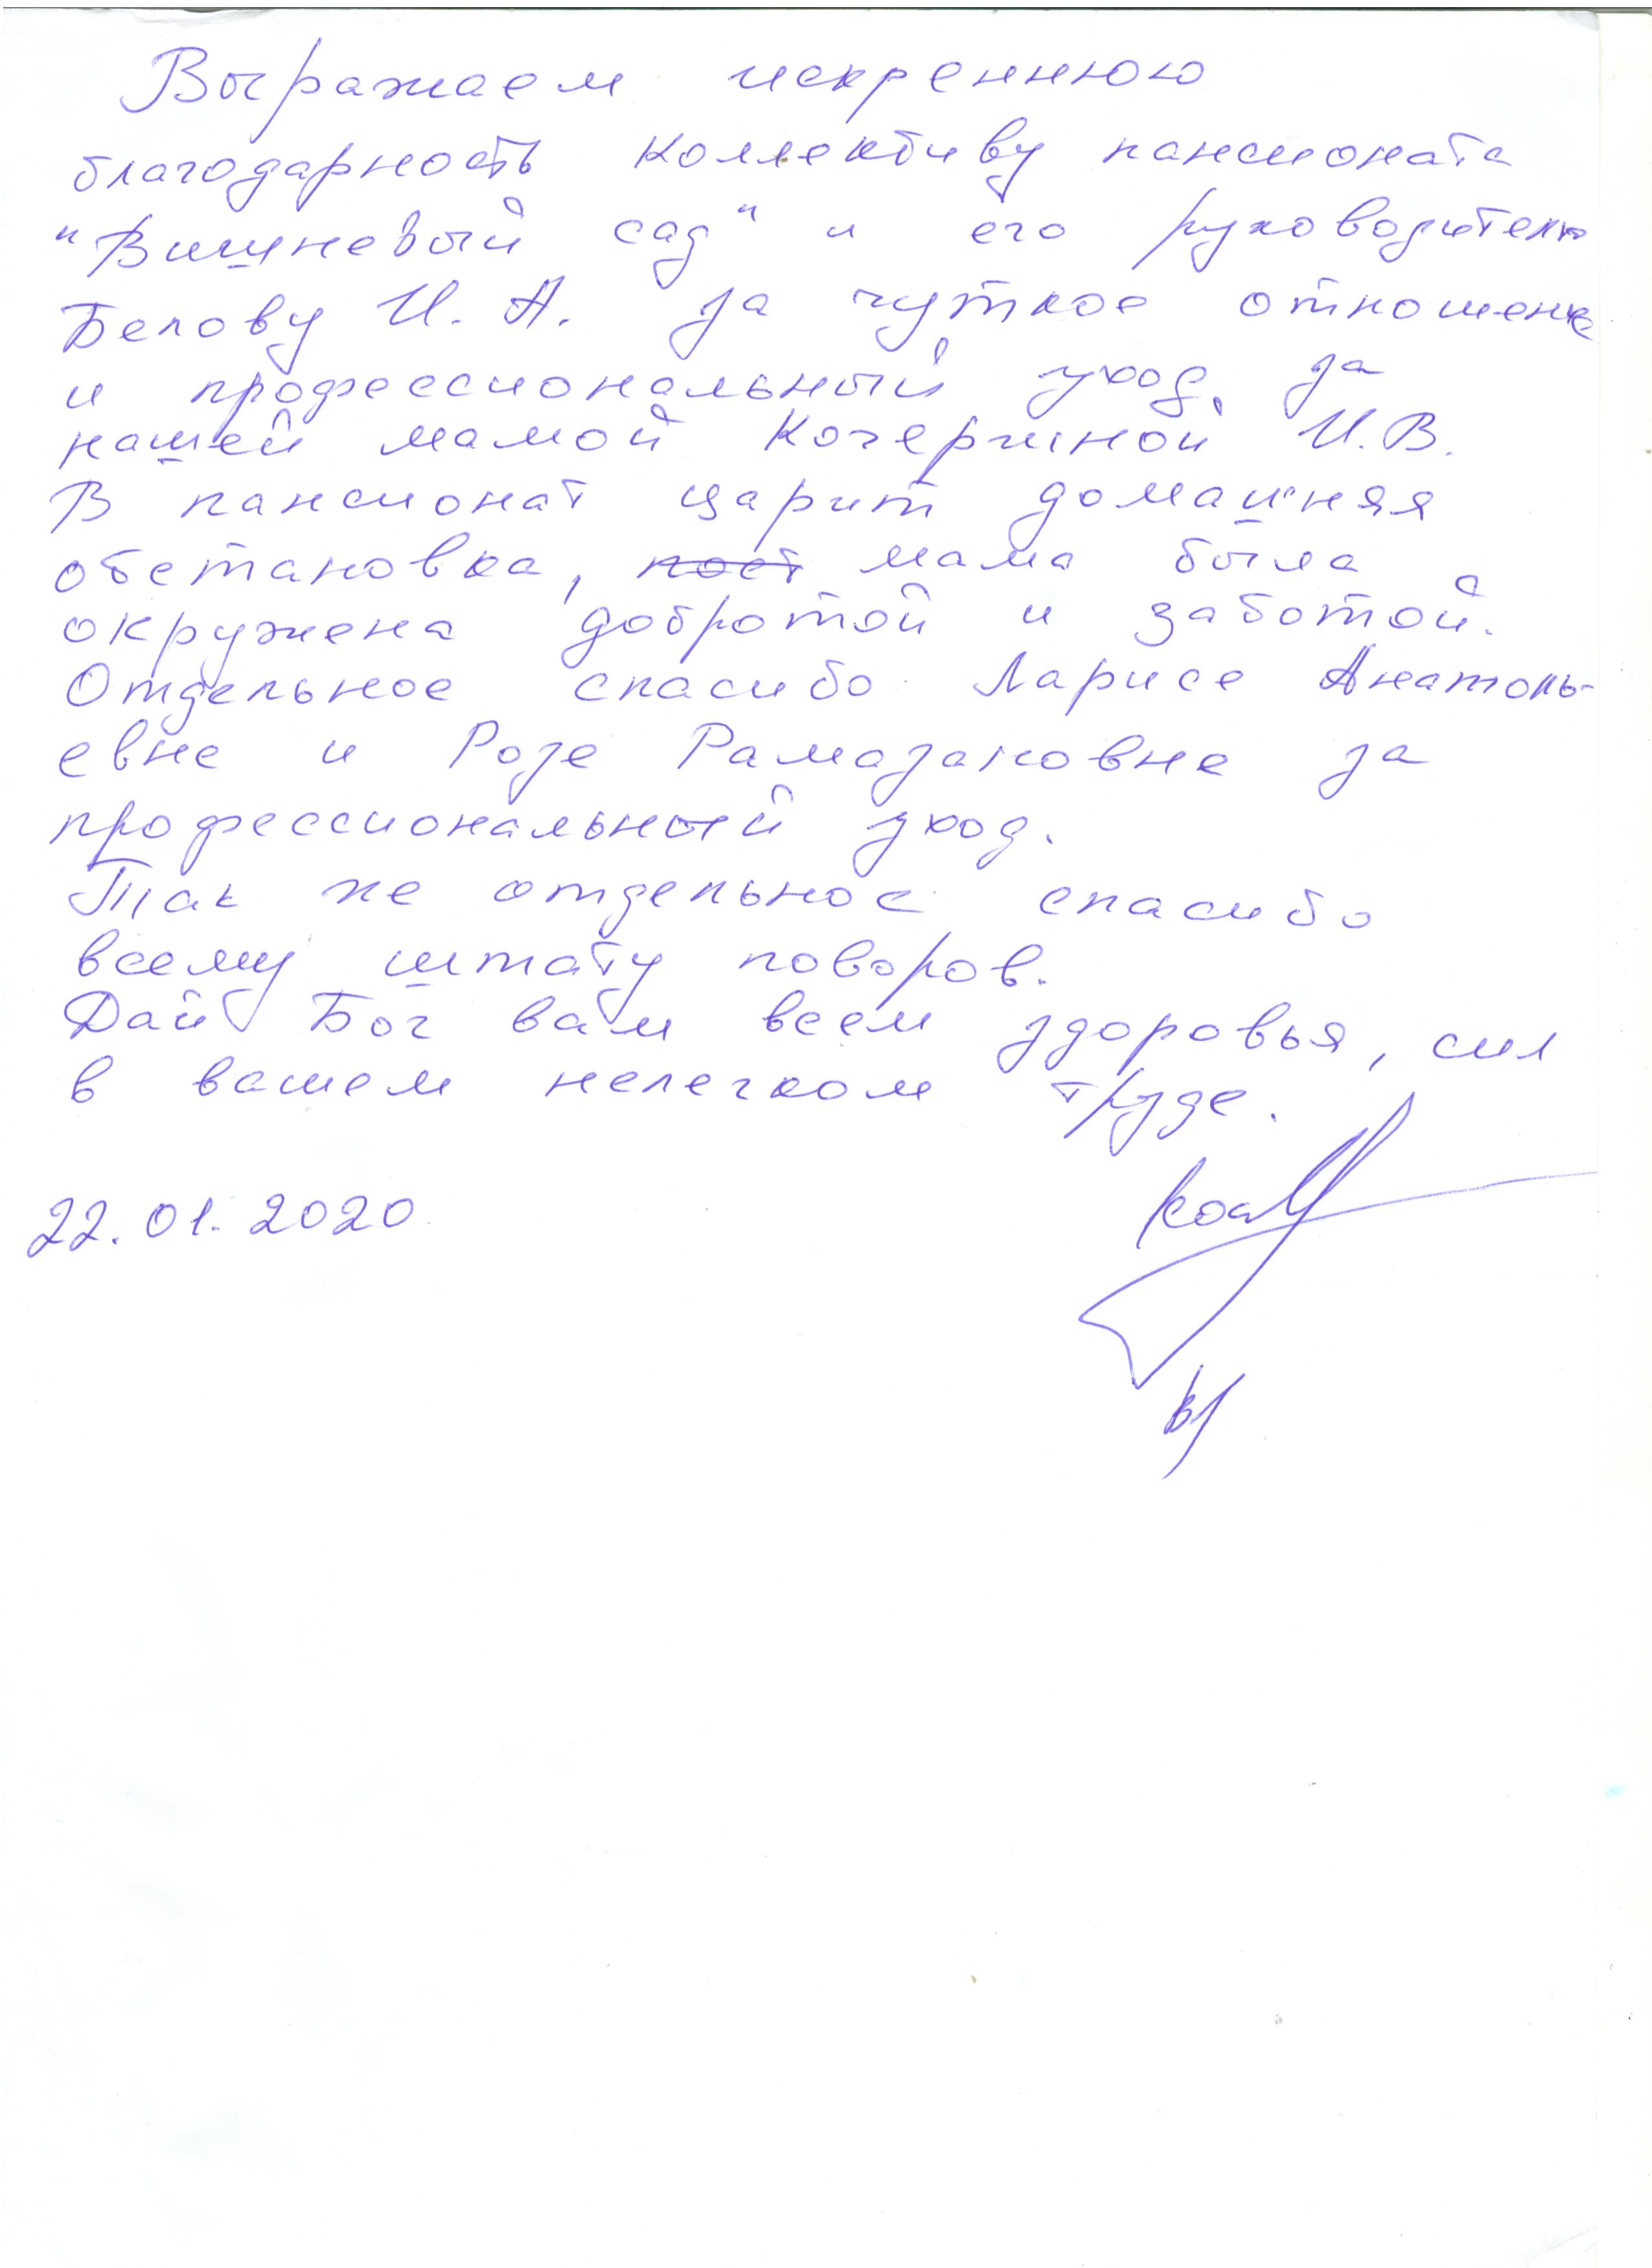 Выражаем искреннюю
благодарность коллективу пансионата
"Вишневый сад" и его руководителю
Белову И. А. за чуткое отношение
и профессиональный уход за
нашей мамой Кочергиной И.В.
В пансионат царит домашняя
обстановка, мама была
окружена добротой и заботой.
Отдельное спасибо Ларисе Анатоль-
евне и Розе Рамазановне за
профессиональный уход.
Так же отдельное спасибо
всему штату поворов.
Дай Бог вам всем здоровья, сил
в вашем нелегком труде.
22.01.2020